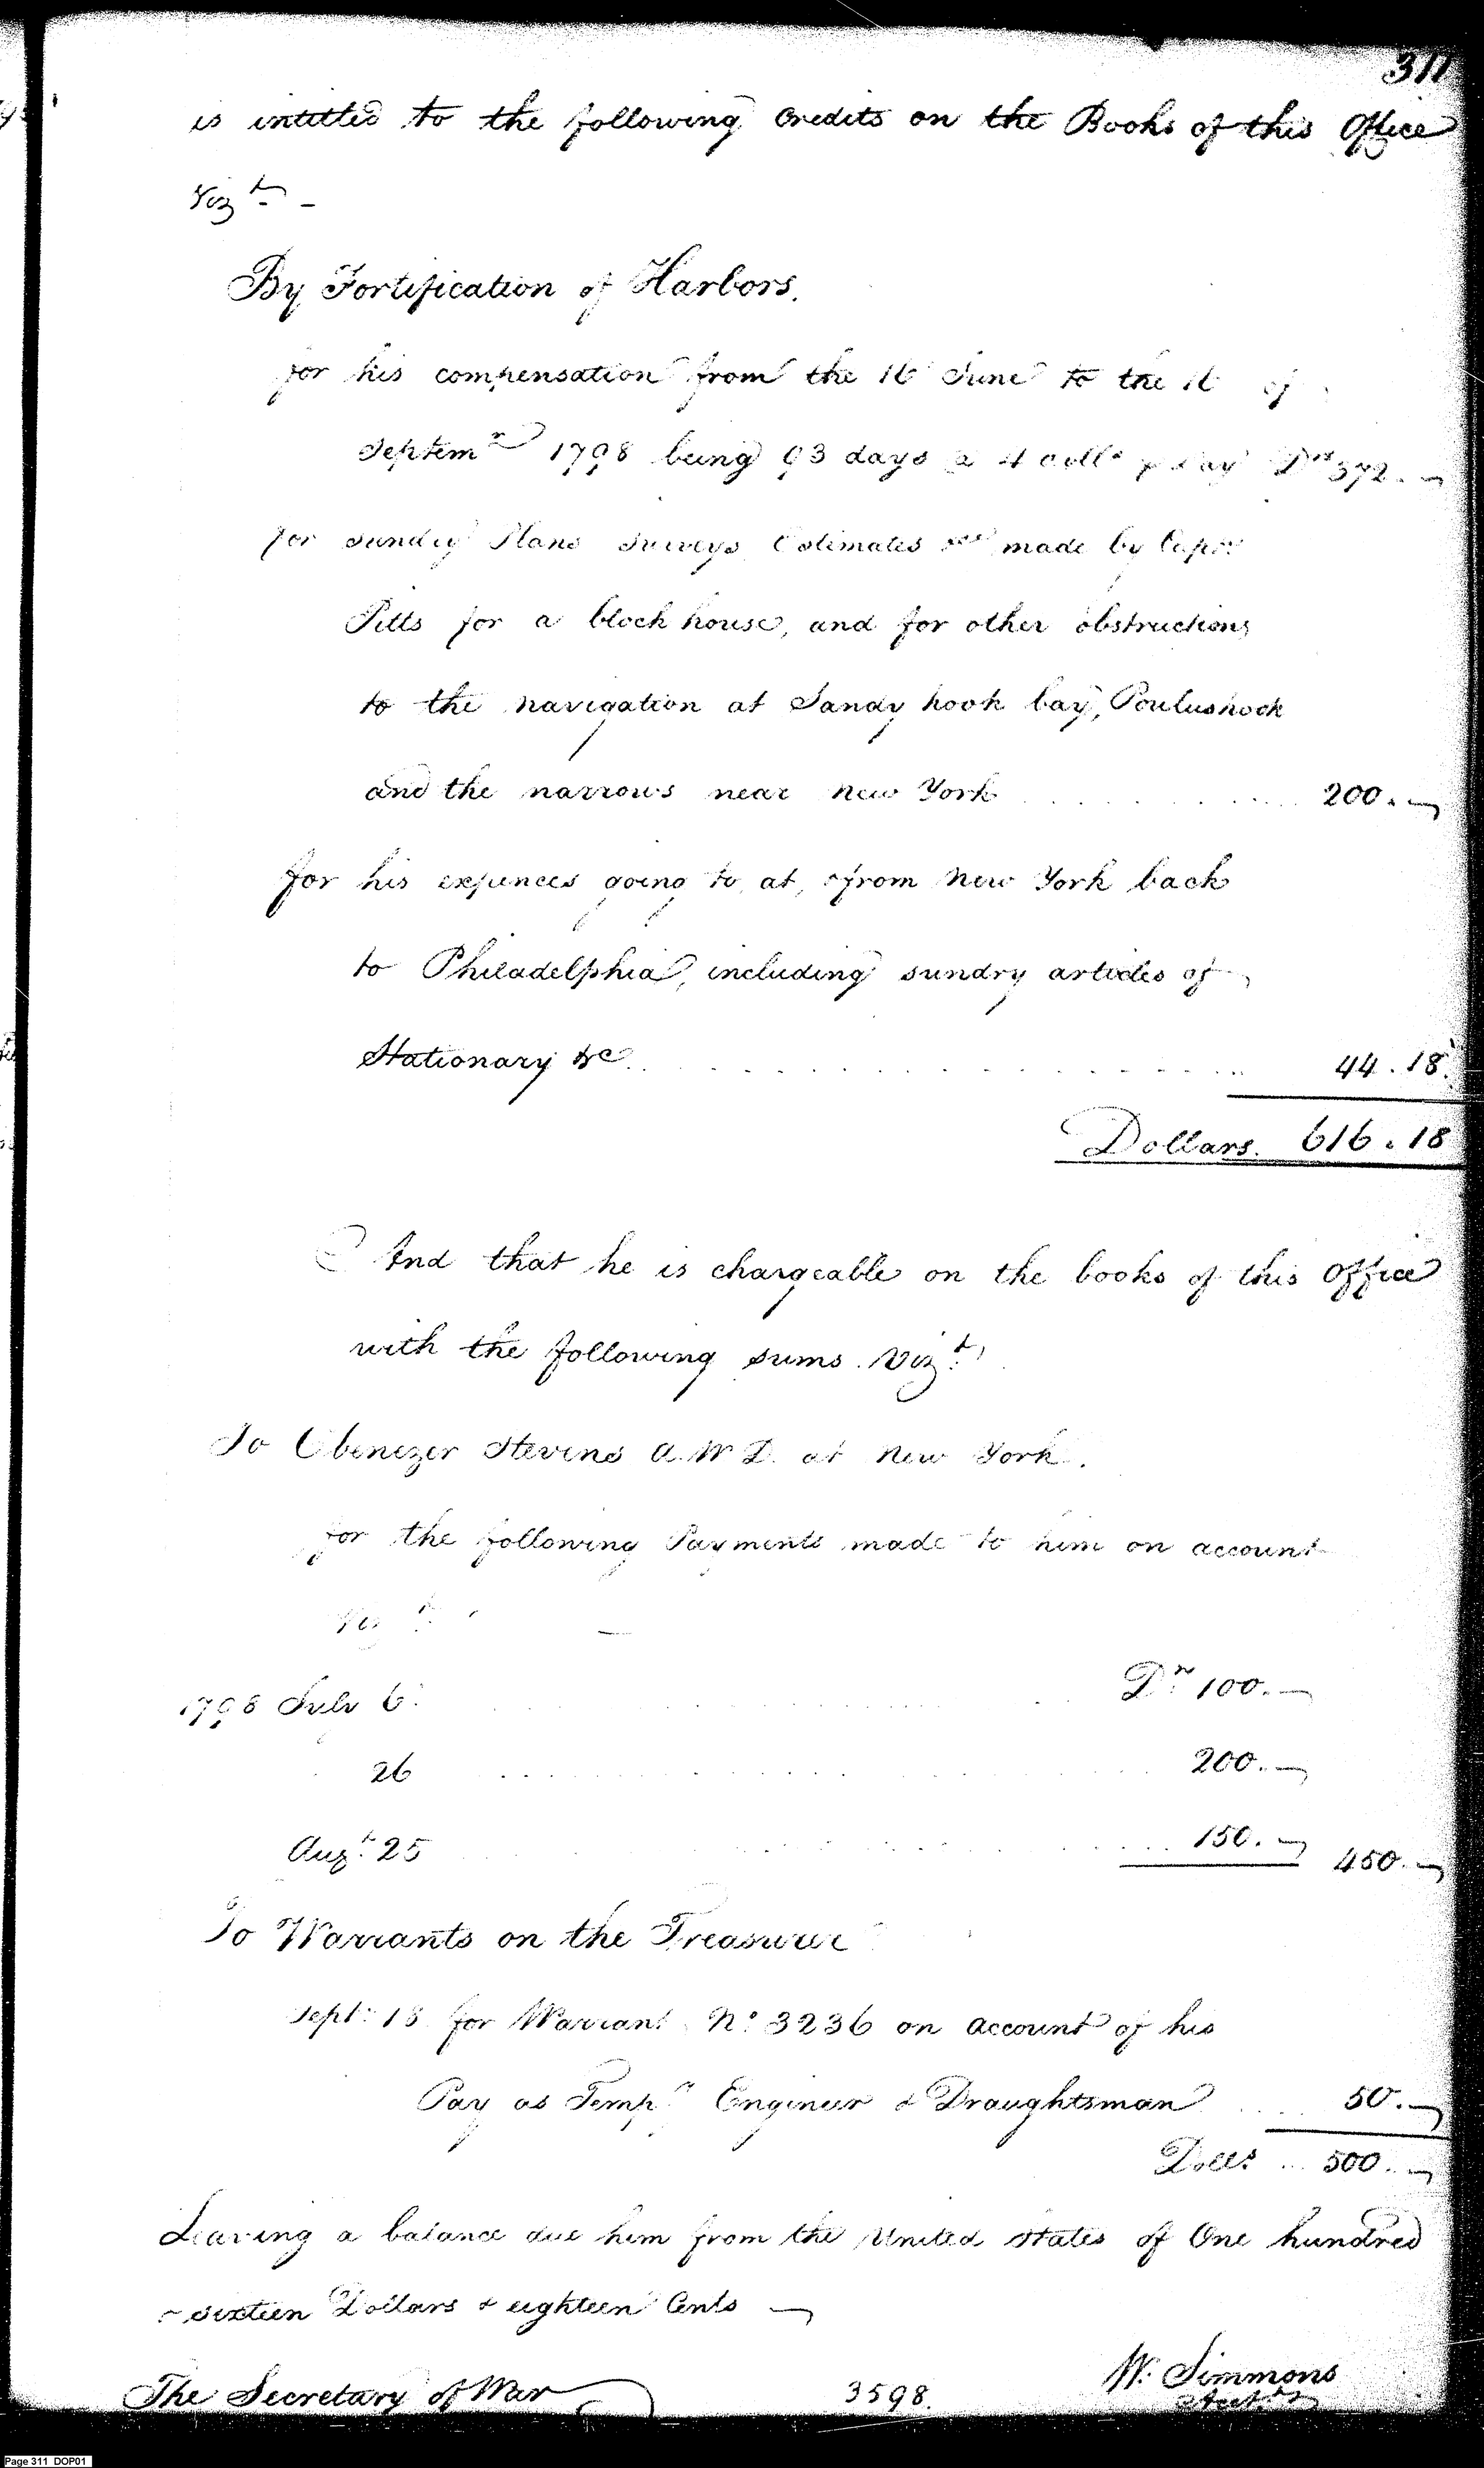 311
is intitled to the following Credits on the Books of this Office
Vizt. -
By Fortification of Harbors.
for his compensation from the 16 June to the 16 of
Septemr 1798 being 93 days a 4 dolls p day Drs 372. -
for sundry Plans Surveys Estimates &c made by Capt
Pitts for a block house, and for other obstructions
to the navigation at Sandy hook bay, Poulushook
and the narrows near New York . . . . . . . . 200. -
for his expences going to, at, & from New York back
to Philadelphia, including sundry articles of
Stationary &c . . . . . . . . . . . . . . 44.18
Dollars. 616.18
And that he is chargeable on the books of this Office
with the following sums. Vizt.
To Ebenezer Stevens A.W.D. at New York.
for the following Payments made to him on account
Vizt. -
1798 July 6. . . . . . . . . . Drs 100. -
26 . . . . . . . . . . 200. -
Augt. 25 . . . . . . . . . . 150. - 450. -
To Warrants on the Treasurer
Sept. 18 for Warrant No. 3236 on account of his
Pay as Tempy Engineer & Draughtsman . . . . 50. -
Dolls .. 500. -
Leaving a balance due him from the United States of One hundred
& sixteen Dollars & eighteen Cents -
The Secretary of War 3598. W. Simmons
Acctt
Page 311 DOP01